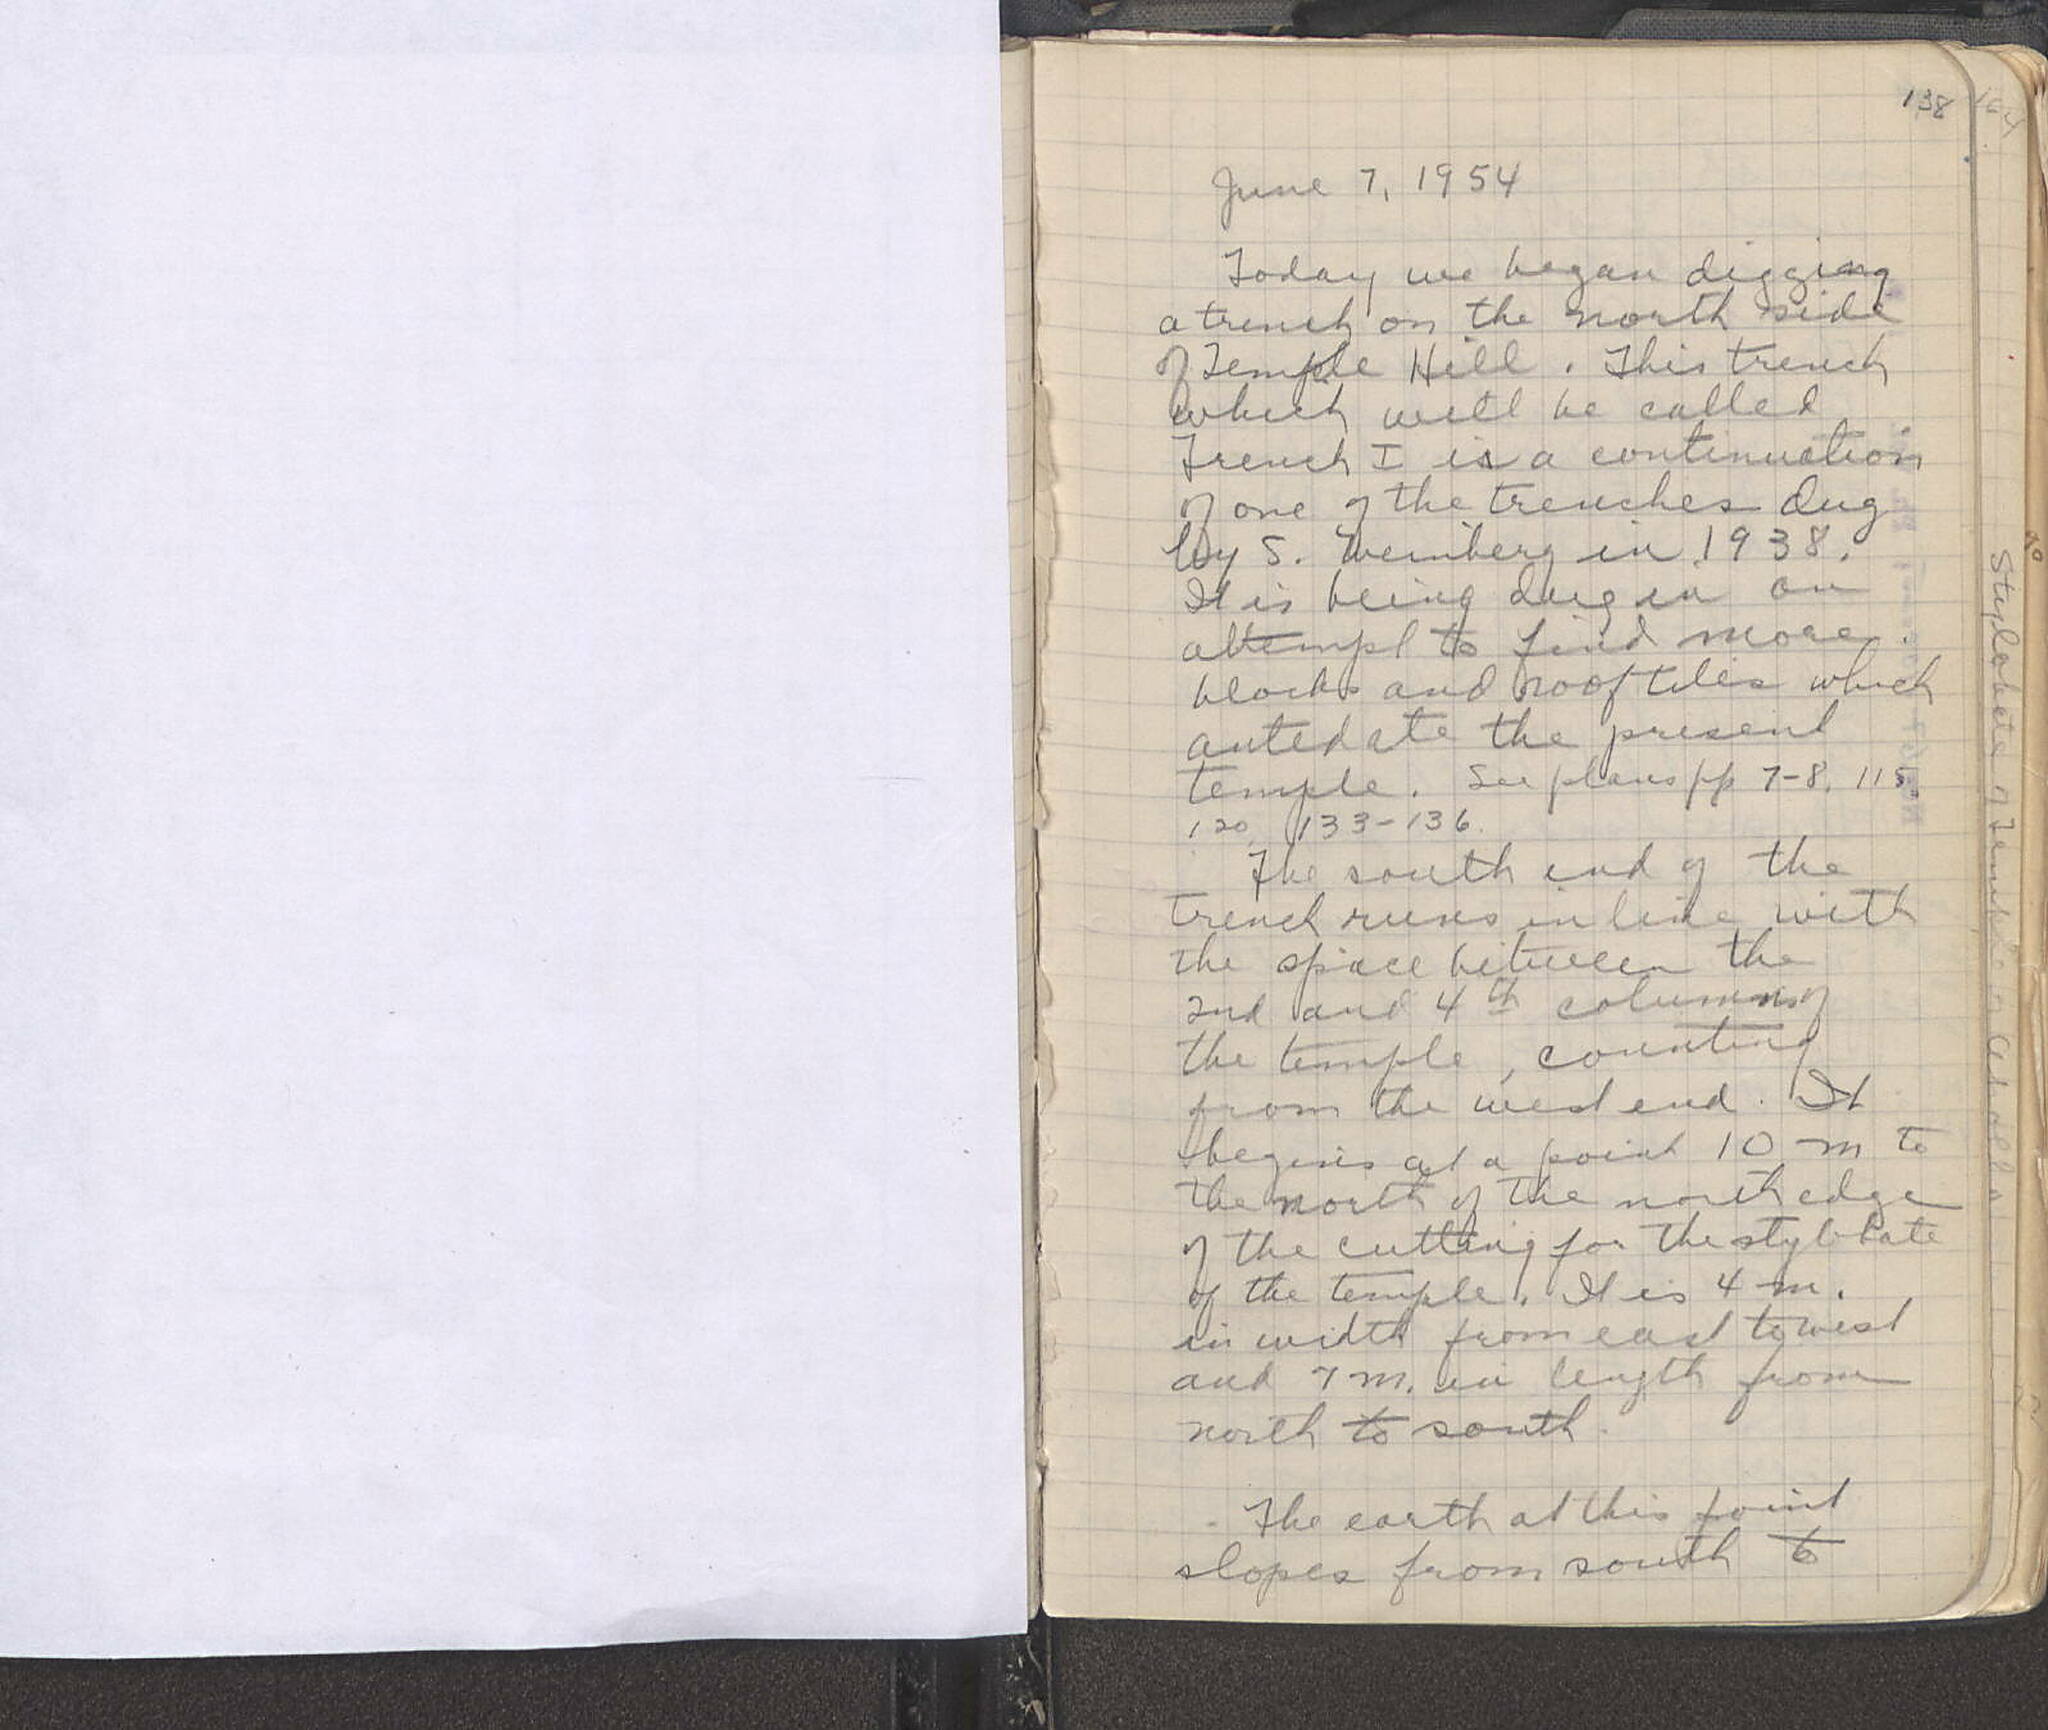 138
164
June 7, 1954
Today we began digging
a trench on the north side
of Temple Hill. This trench
which will be called
Trench I is a continuation
of one of the trenches dug
by S. Weinberg in 1938.
It is being dug in an
attempt to find more
blocks and roof tiles which
antedate the present
temple. See plans pp 7-8, 115,
120, 133-136.
The south end of the
trench runs in line with
the space between the
2nd and 4th columns of
the temple, counting
from the west end. It
begins at a point 10 m to
the north of the north edge
of the cutting for the stylobate
of the temple. It is 4 m.
in width from east to west
and 7 m. in length from
north to south.
The earth at this point
slopes from south to
Stylobate of Temple of Apollo